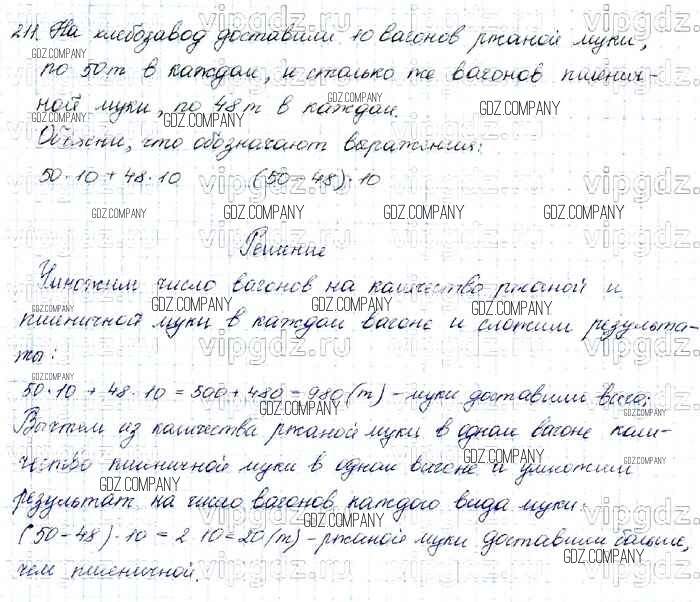 211. На хлебозавод доставили 10 вагонов ржаной муки,
по 50т в каждом, и столько же вагонов пшенич-
ной муки, по 48т в каждом.
Объясни, что обозначают выражения:
50·10+48·10 (50-48)·10
Решение
Умножим число вагонов на количество ржаной и
пшеничной муки в каждом вагоне и сложим результа-
ты:
50·10+48·10=500+480=980(т)-муки доставили всего;
Вычтем из количества ржаной муки в одном вагоне коли-
чество пшеничной муки в одном вагоне и умножим
результат на число вагонов каждого вида муки:
(50-48)·10=2·10=20(т)-ржаной муки доставили больше,
чем пшеничной.